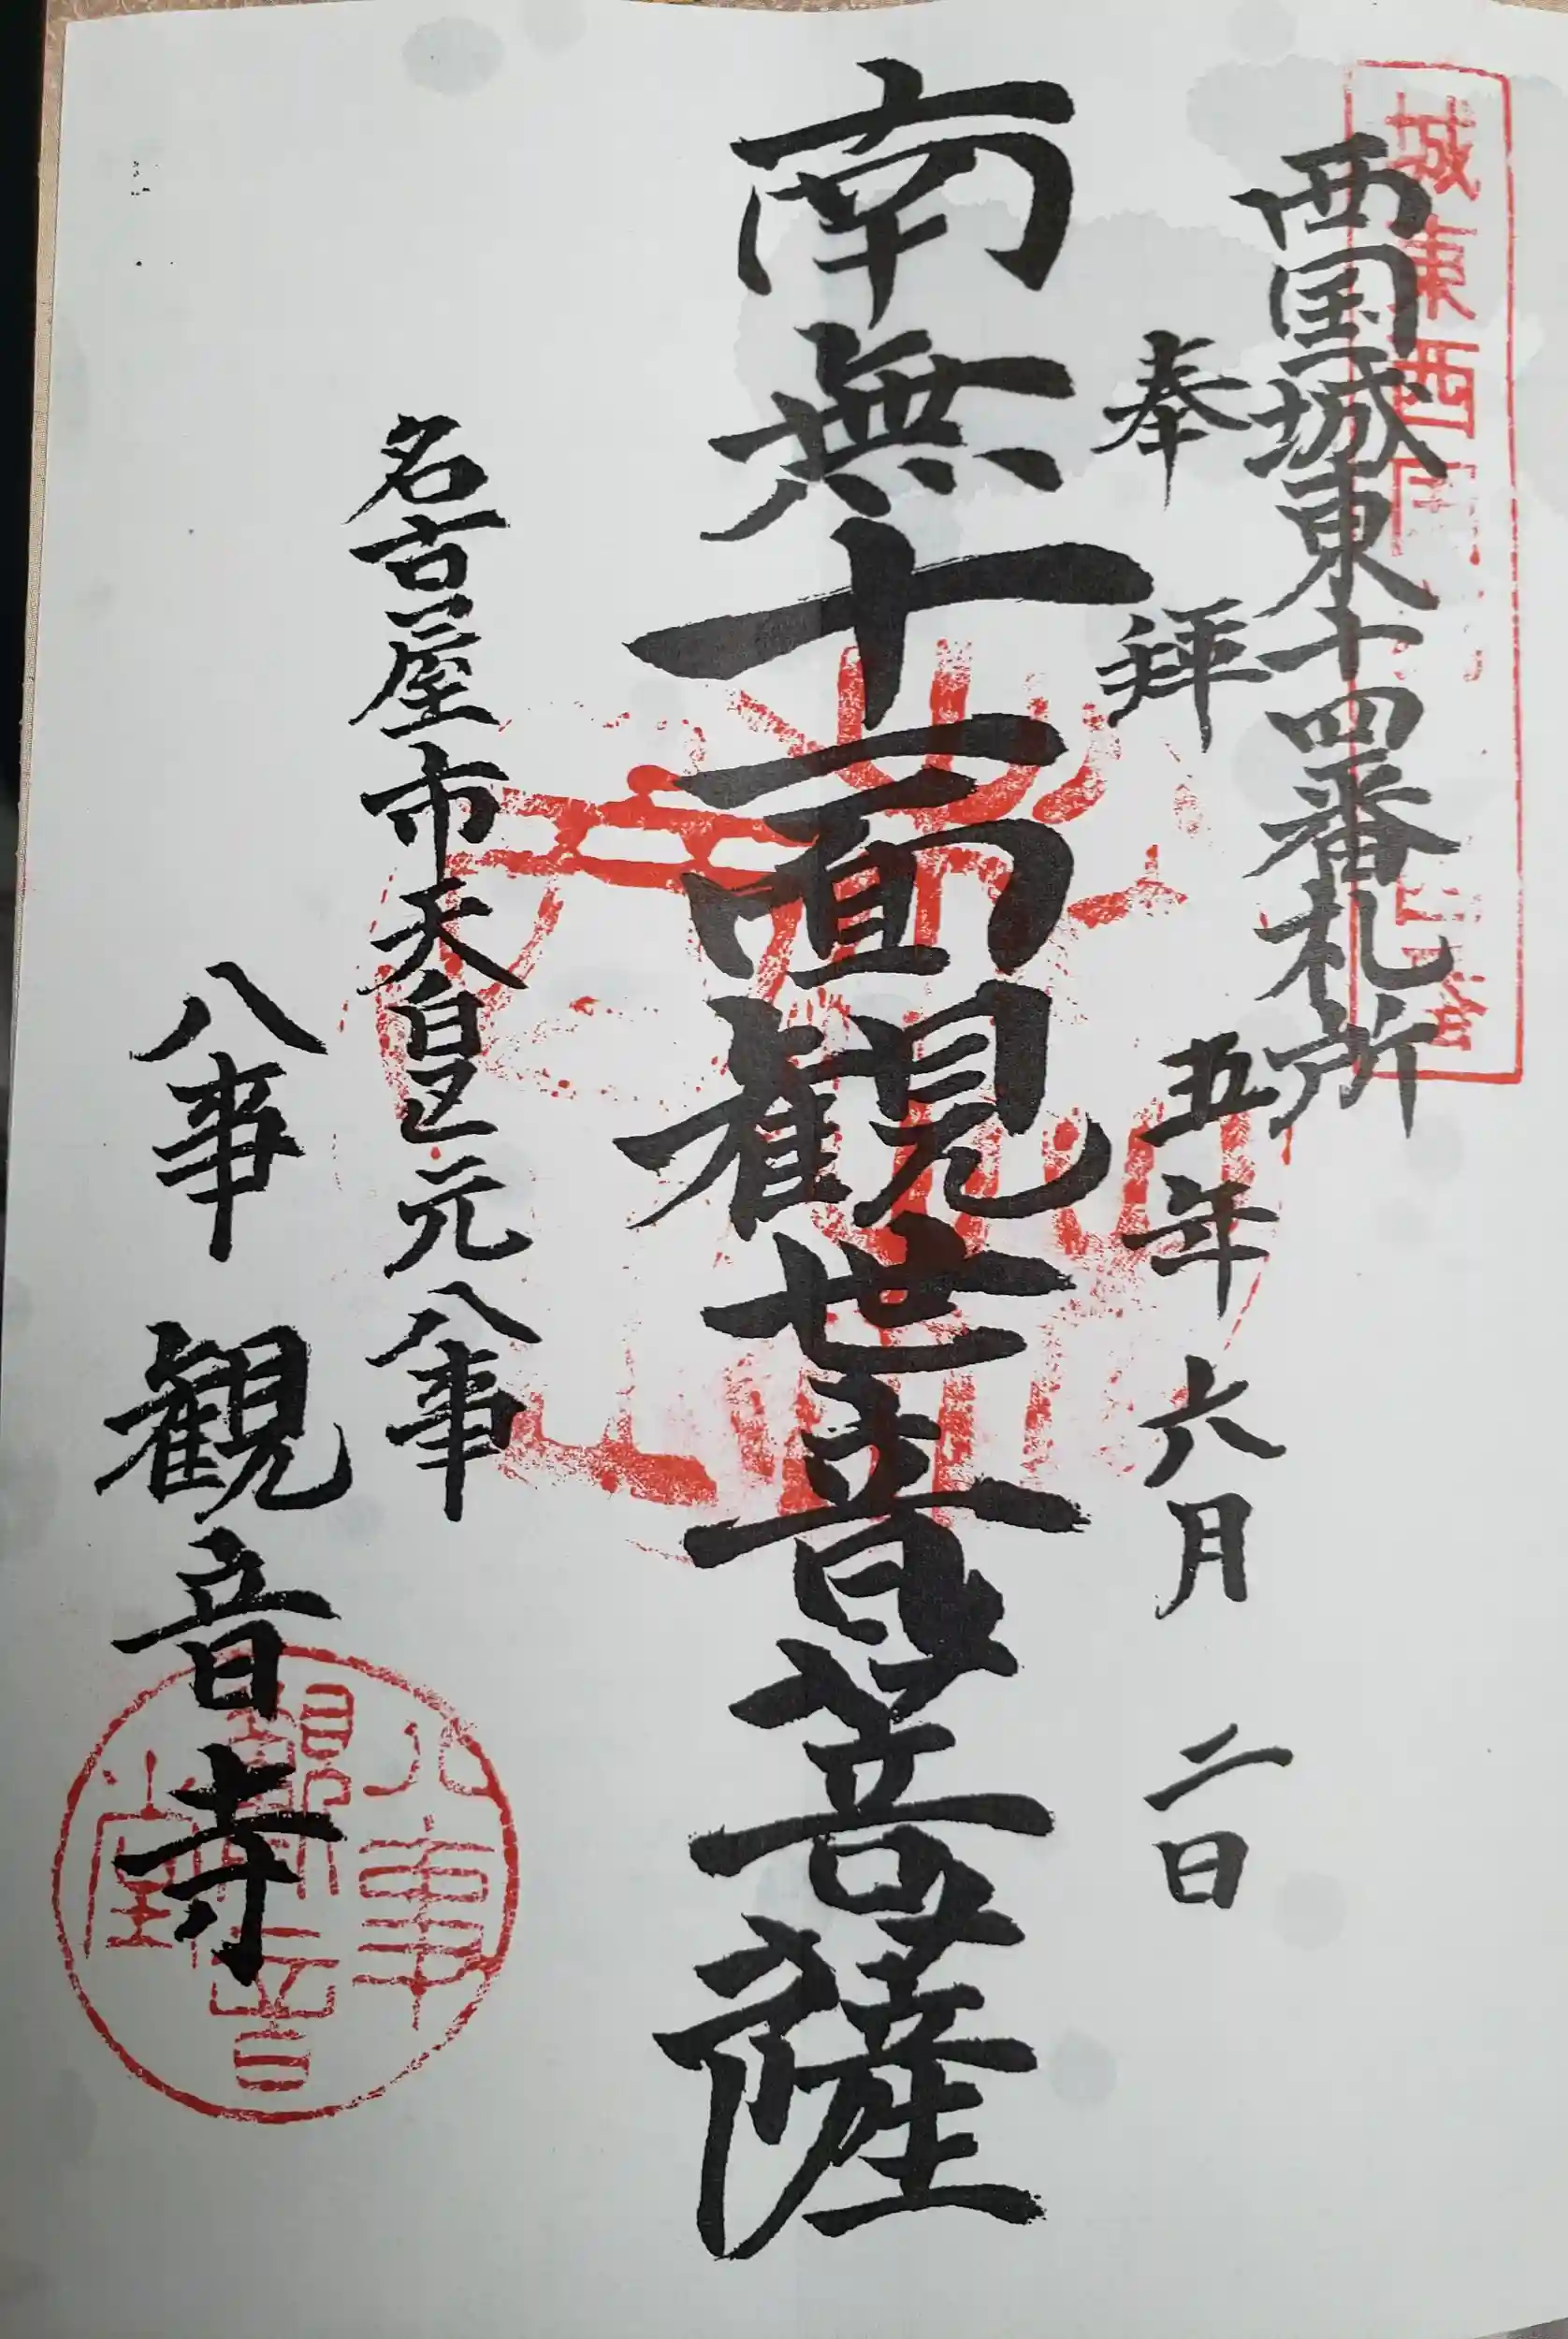 城東西国
西国城東十四番札所
奉拝 五年六月二日
南無十一面観世音菩薩
名古屋市天白区元八事
八事 観音寺
八事
観音
堂